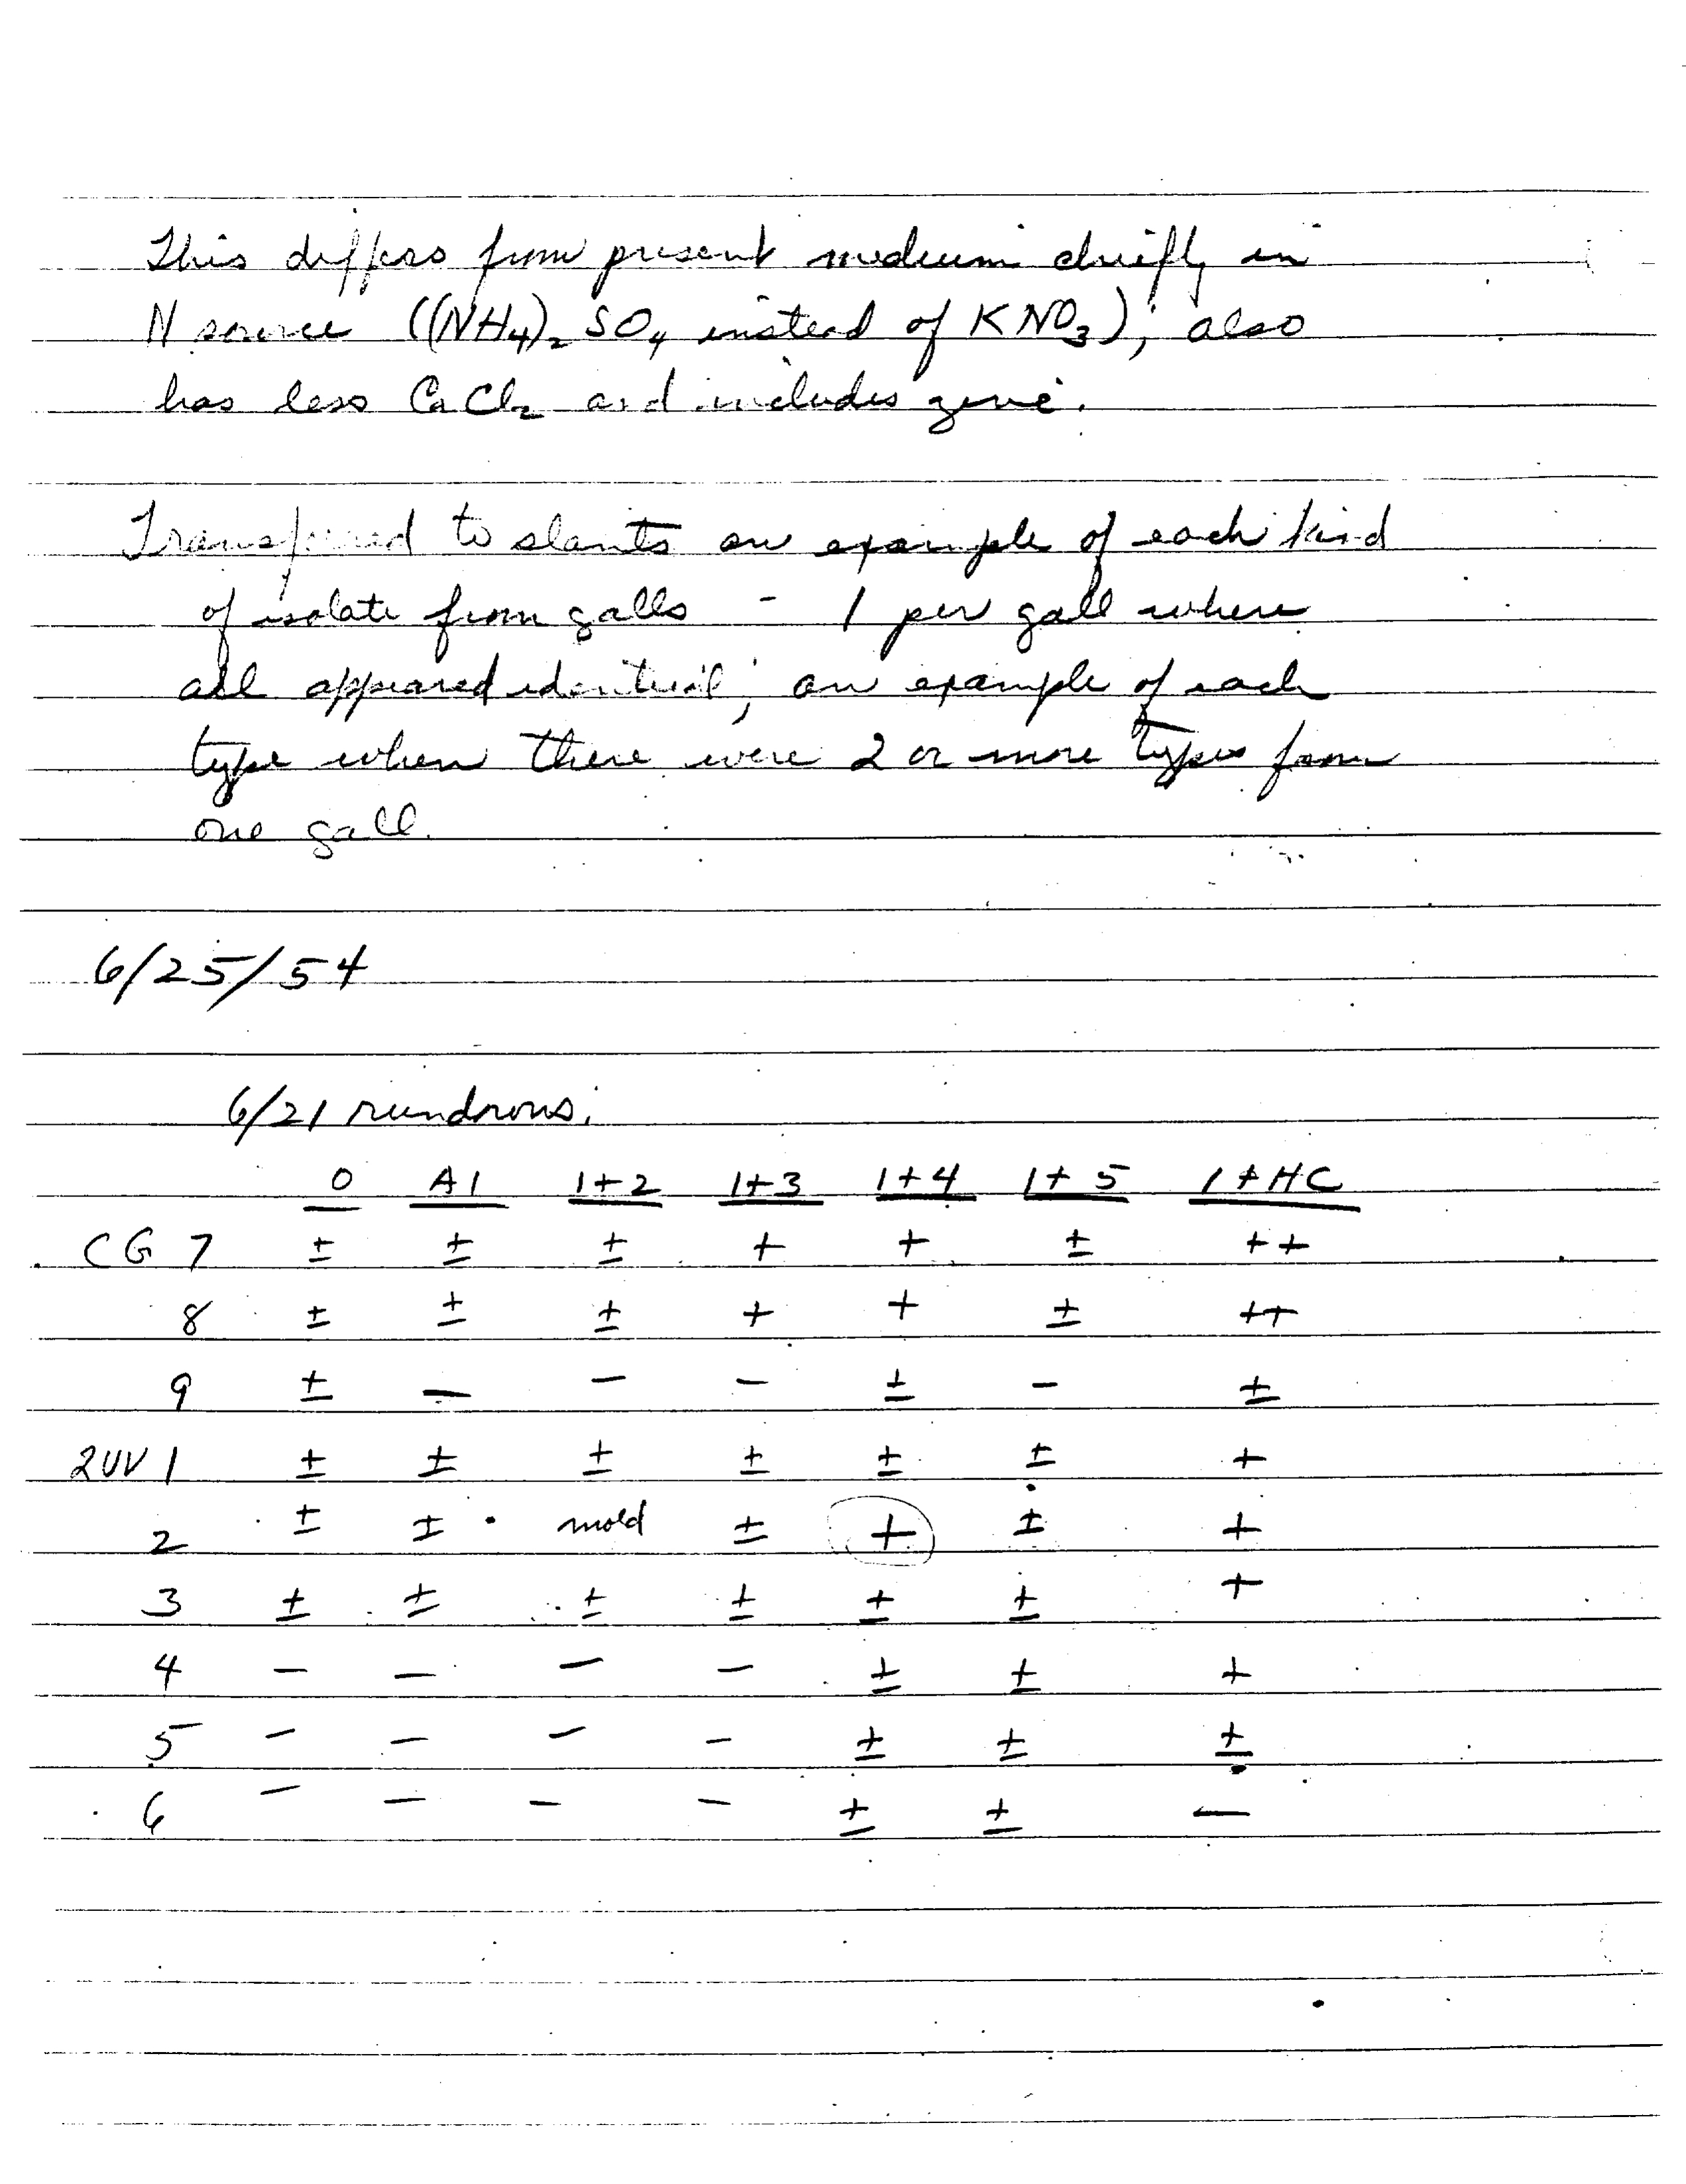 This differs from present medium chiefly in
N source ((NH4)2 SO4 instead of KNO3); also
has less CaCl2 and includes zinc.
Transferred to slants an example of each kind
of isolate from galls - 1 per gall where
all appeared identical; an example of each
type when there were 2 or more types from
one gall.
6/25/54
6/21 rundrons:
0 A1 1+2 1+3 1+4 1+5 1+HC
CG 7 ± ± ± + + ± ++
8 ± ± ± + + ± ++
9 ± - - - ± - ±
2UV 1 ± ± ± ± ± ± +
2 ± ± mold ± + ± +
3 ± ± ± ± ± ± +
4 - - - - ± ± +
5 - - - - ± ± ±
6 - - - - ± ± -